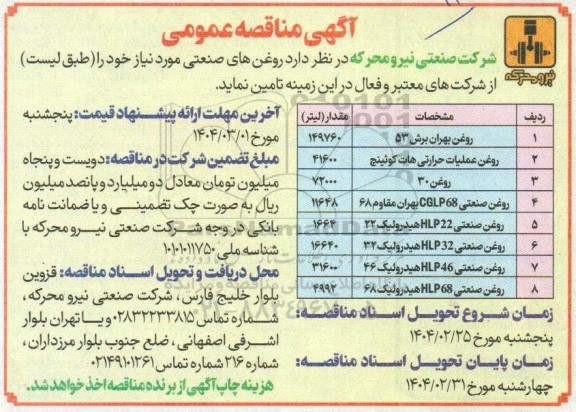 آگهی مناقصه عمومی
نیرومحرکه
شرکت صنعتی نیرو محرکه در نظر دارد روغن های صنعتی مورد نیاز خود را (طبق لیست)
از شرکت های معتبر و فعال در این زمینه تامین نماید.
ردیف مشخصات مقدار (لیتر)
۱ روغن بهران برش ۵۳ ۱۴۹۷۶۰
۲ روغن عملیات حرارتی هات کوئینچ ۴۱۶۰۰
۳ روغن ۳۰ ۷۲۰۰۰
۴ روغن صنعتی CGLP68 بهران مقاوم ۶۸ ۱۱۶۴۸
۵ روغن صنعتی HLP22 هیدرولیک ۲۲ ۱۶۶۴
۶ روغن صنعتی HLP32 هیدرولیک ۳۲ ۱۶۶۴۰
۷ روغن صنعتی HLP46 هیدرولیک ۴۶ ۳۱۶۰۰
۸ روغن صنعتی HLP68 هیدرولیک ۶۸ ۴۹۹۲
زمان شروع تحویل اسناد مناقصه:
پنجشنبه مورخ ۱۴۰۴/۰۲/۲۵
زمان پایان تحویل اسناد مناقصه:
چهارشنبه مورخ ۱۴۰۴/۰۲/۳۱
آخرین مهلت ارائه پیشنهاد قیمت: پنجشنبه
مورخ ۱۴۰۴/۰۳/۰۱
مبلغ تضمین شرکت در مناقصه: دویست و پنجاه
میلیون تومان معادل دو میلیارد و پانصد میلیون
ریال به صورت چک تضمینی و یا ضمانت نامه
بانکی در وجه شرکت صنعتی نیرو محرکه با
شناسه ملی ۱۰۱۰۱۰۱۱۷۵۰
محل دریافت و تحویل اسناد مناقصه: قزوین
بلوار خلیج فارس، شرکت صنعتی نیرو محرکه،
شماره تماس ۰۲۸۳۲۲۳۳۸۱۵ و یا تهران بلوار
اشرفی اصفهانی، ضلع جنوب بلوار مرزداران،
شماره ۲۱۶ شماره تماس ۰۲۱۴۹۱۰۱۲۶۱
هزینه چاپ آگهی از برنده مناقصه اخذ خواهد شد.